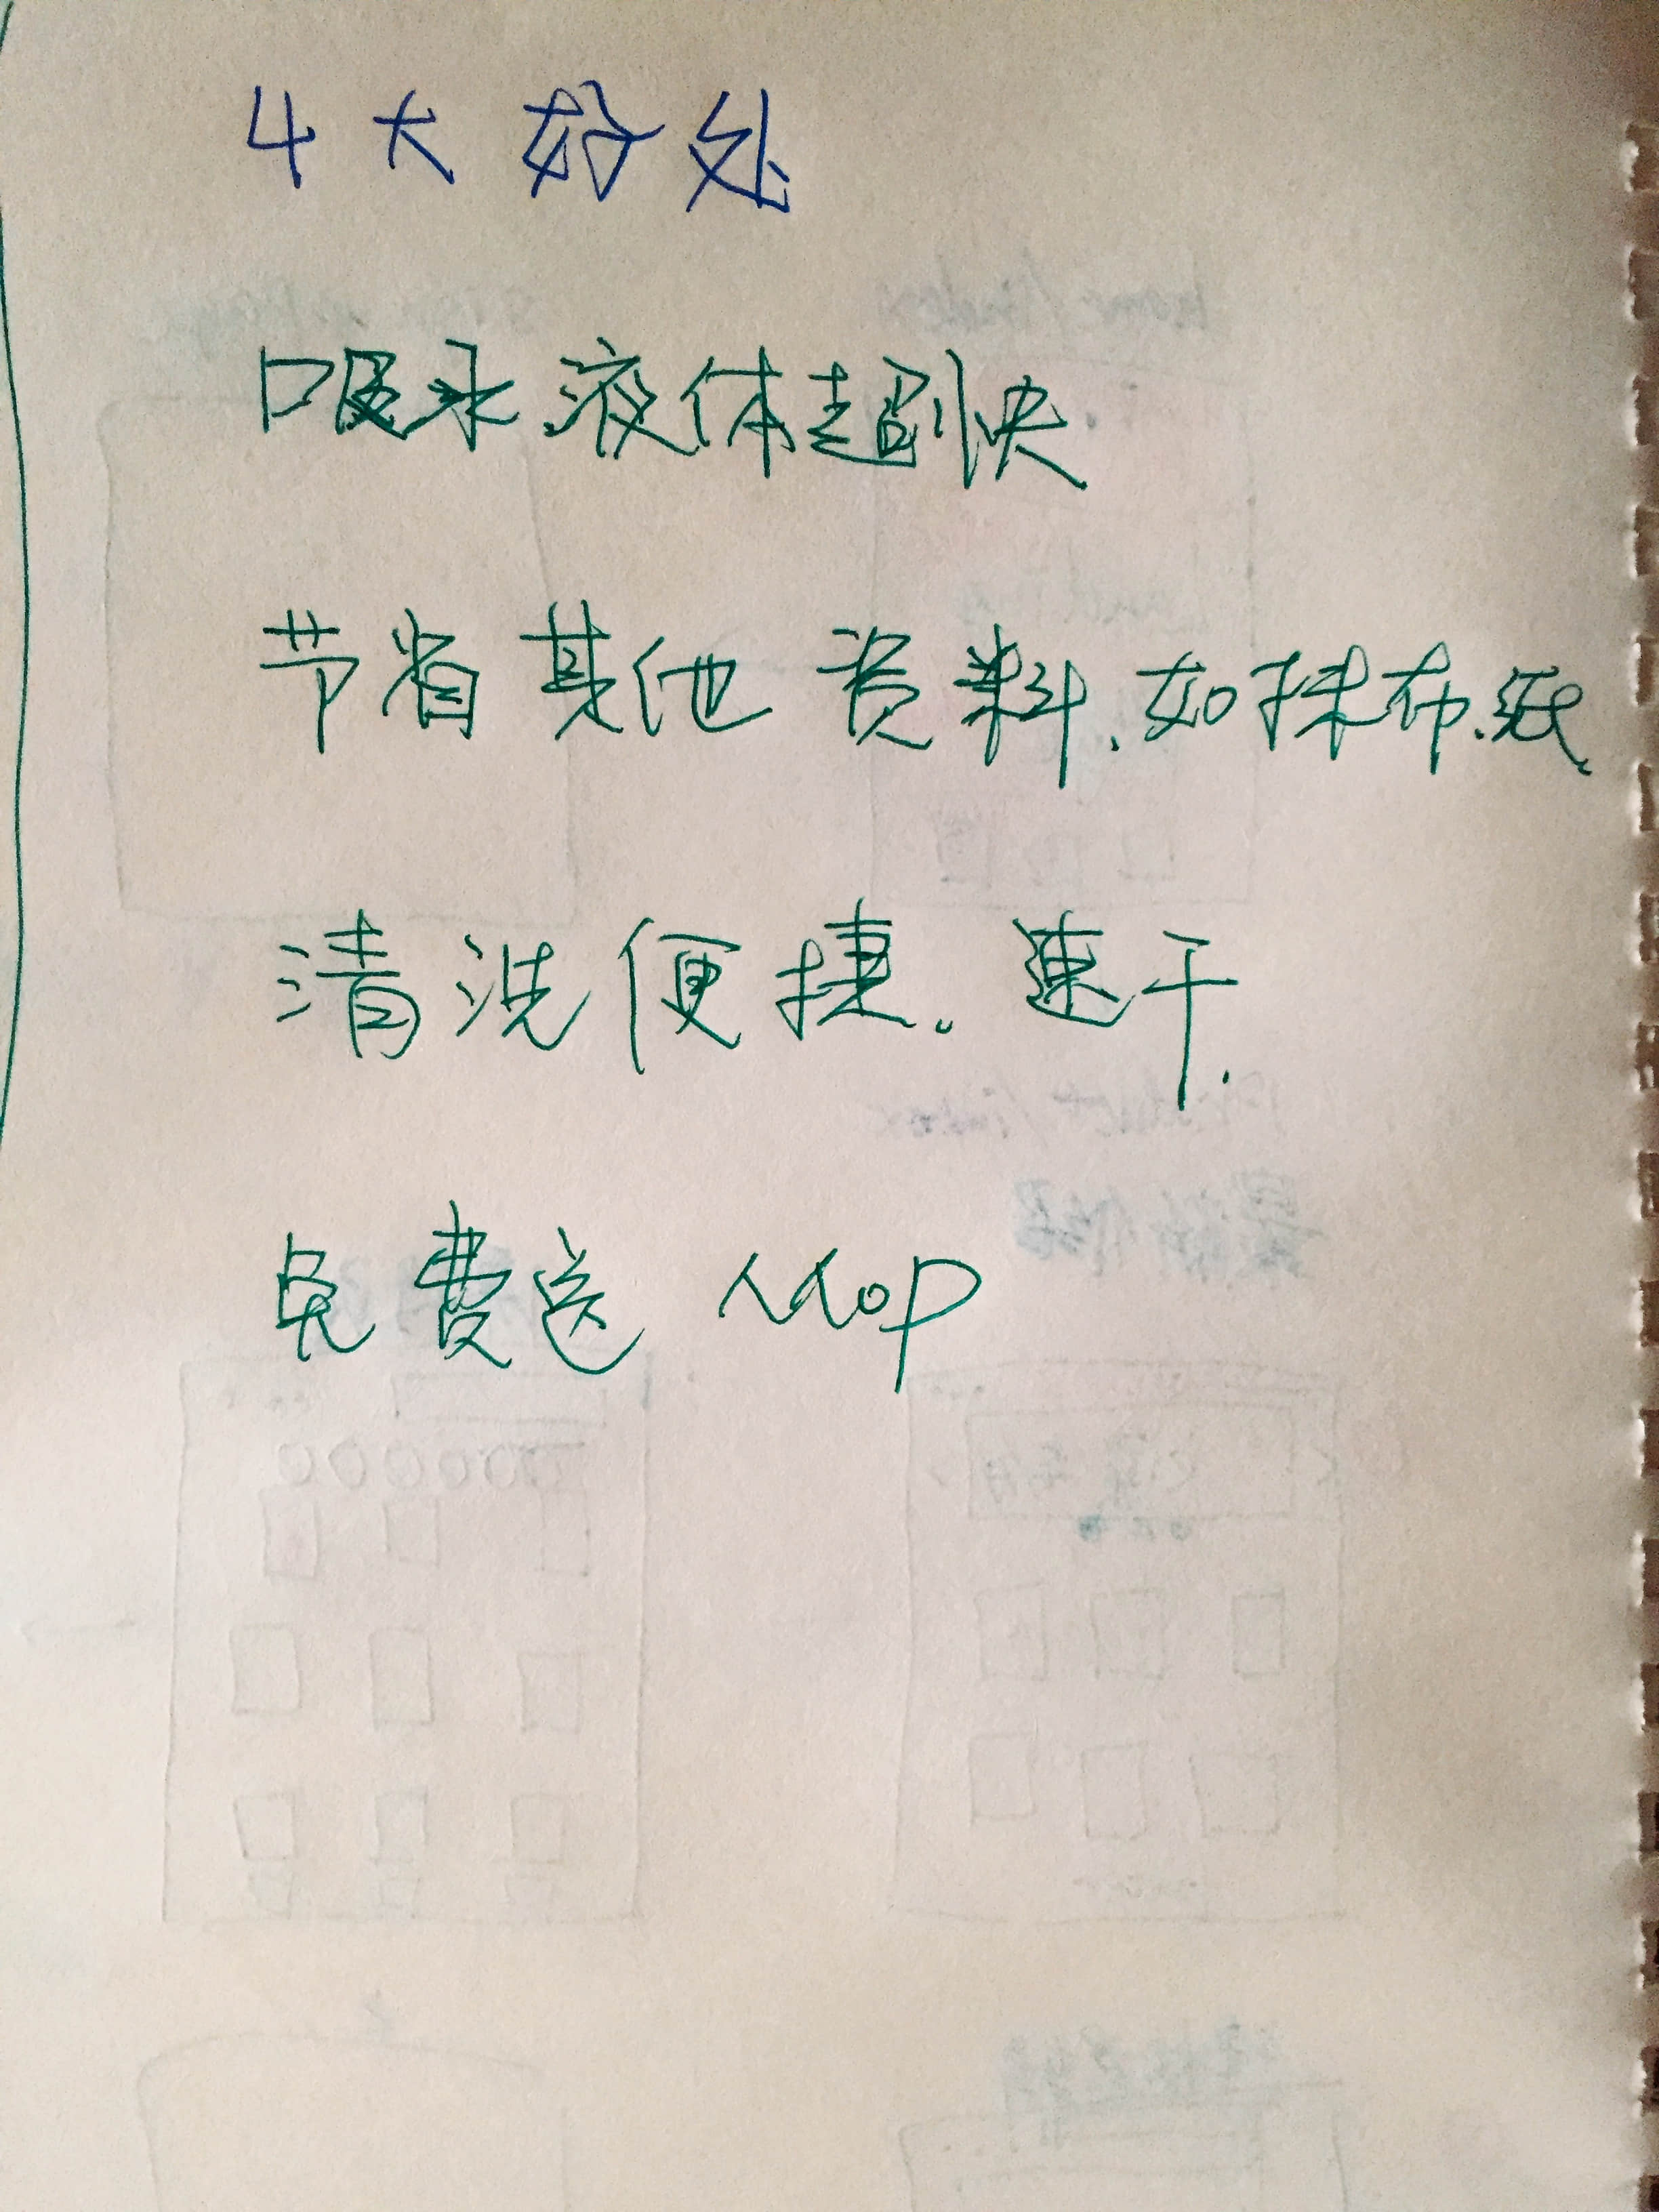 4大好处
吸水液体超快
节省其他资料.如抹布.纸.
清洗便捷.速干.
免费送 Mop